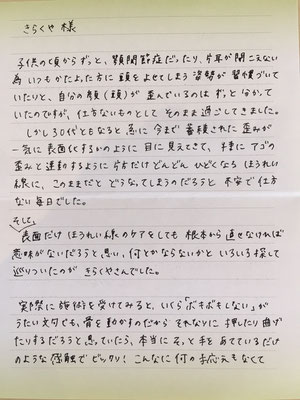 きらくや 様
子供の頃からずっと、顎関節症だったり、片耳が聞こえない
為 いつもかたよった方に頭をよせてしまう 姿勢が 習慣づいて
いたりと、自分の顔(頭)が 歪んでいるのは ずっと分かって
いたのですが、仕方ないものとして そのまま過ごしてきました。
しかし30代ともなると、急に 今まで 蓄積された 歪みが
一気に 表面化するかのように 目に見えてきて、特に アゴの
歪みと連動するように 片方だけ どんどん ひどくなる ほうれい
線に、このままだと どうなってしまうのだろうと 不安で 仕方
ない 毎日でした。
そして、
表面だけ ほうれい線のケアをしても 根本から 直せなければ
意味がないだろうと思い、何とかならないかと いろいろ探して
巡りついたのが きらくやさんでした。
実際に 施術を受けてみると、いくら「ボキボキもしない」が
うたい文句でも、骨を動かすのだから それなりに 押したり曲げ
たりするだろうと思っていたら、本当に そっと手をあてているだけ
のような 感触で ビックリ! こんなに 何の手応えもなくて